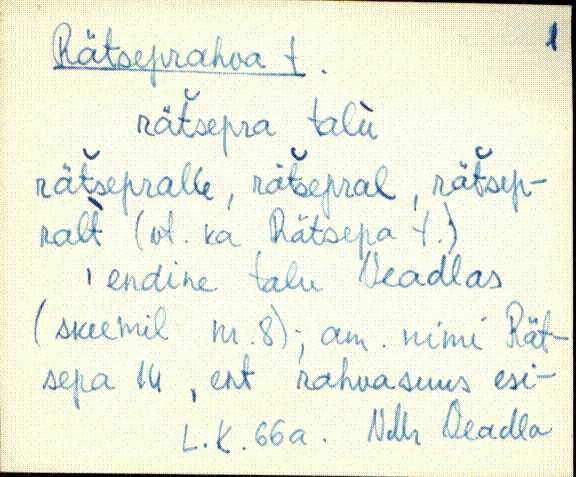 1
Rätseprahva t.
rät̆sepra talù
rät̆sepralle, rät̆sepral, rät̆sep-
ralt̀ (vt. ka Rätsepa t.)
endine talu Deadlas
(skeemil nr. 8); am. nimi Rät-
sepa 14, ent rahvasuus esi-
L.K. 66a. Deadla